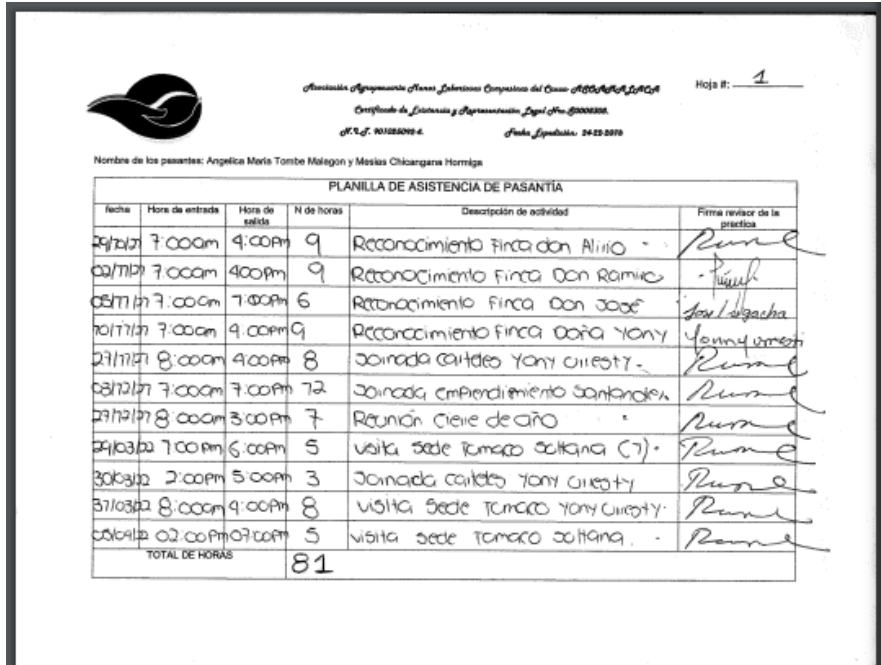 Asociación Agropecuaria Manos Laboriosas Campesinas del Cauca
Certificado de Existencia y Representación Legal Nro.
Hoja #: 1
Nombre de los pasantes: Angelica Maria Tombe Malegon y Mesias Chicangana Hormiga
PLANILLA DE ASISTENCIA DE PASANTÍA
fecha Hora de entrada Hora de salida N de horas Descripción de actividad Firma revisor de la practica
29/10/21 7:00am 4:00pm 9 Reconocimiento Finca don Alirio
02/11/21 7:00am 400pm 9 Reconocimiento Finca Don Ramiro
05/11/21 7:00am 1:00pm 6 Reconocimiento Finca Don José
10/11/21 7:00am 4:00pm 9 Reconocimiento Finca Doña Yony
8:00am 4:00pm 8 Jornada Yony
03/12/21 7:00am 7:00pm 12 Jornada emprendimiento Santander
8:00am 3:00pm 7 Reunión cierre de año
29/03/22 1:00pm 6:00pm 5 visita sede Tomaco Sultana (1)
30/03/22 2:00pm 5:00pm 3 Jornada Yony
31/03/22 8:00am 4:00pm 8 visita sede Tomaco Yony
02:00pm 07:00pm 5 visita sede Tomaco Sultana
TOTAL DE HORAS 81